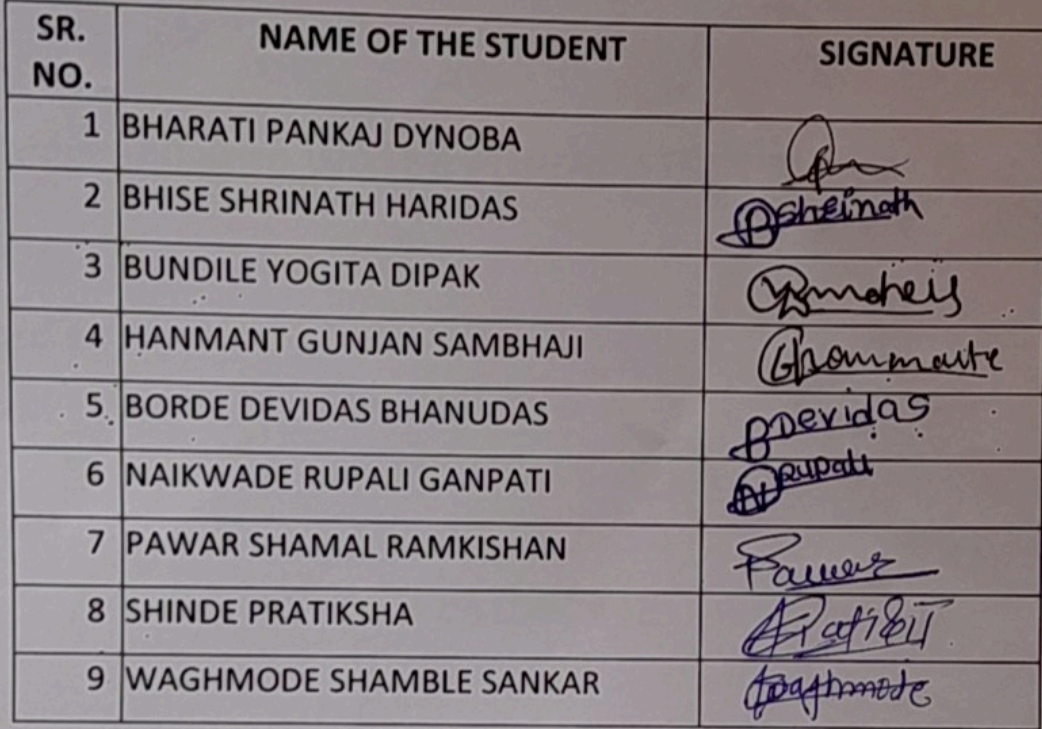 SR. NO. NAME OF THE STUDENT SIGNATURE
1 BHARATI PANKAJ DYNOBA
2 BHISE SHRINATH HARIDAS Sheinath
3 BUNDILE YOGITA DIPAK
4 HANMANT GUNJAN SAMBHAJI
5 BORDE DEVIDAS BHANUDAS Devidas
6 NAIKWADE RUPALI GANPATI Rupali
7 PAWAR SHAMAL RAMKISHAN Pawar
8 SHINDE PRATIKSHA
9 WAGHMODE SHAMBLE SANKAR Waghmode